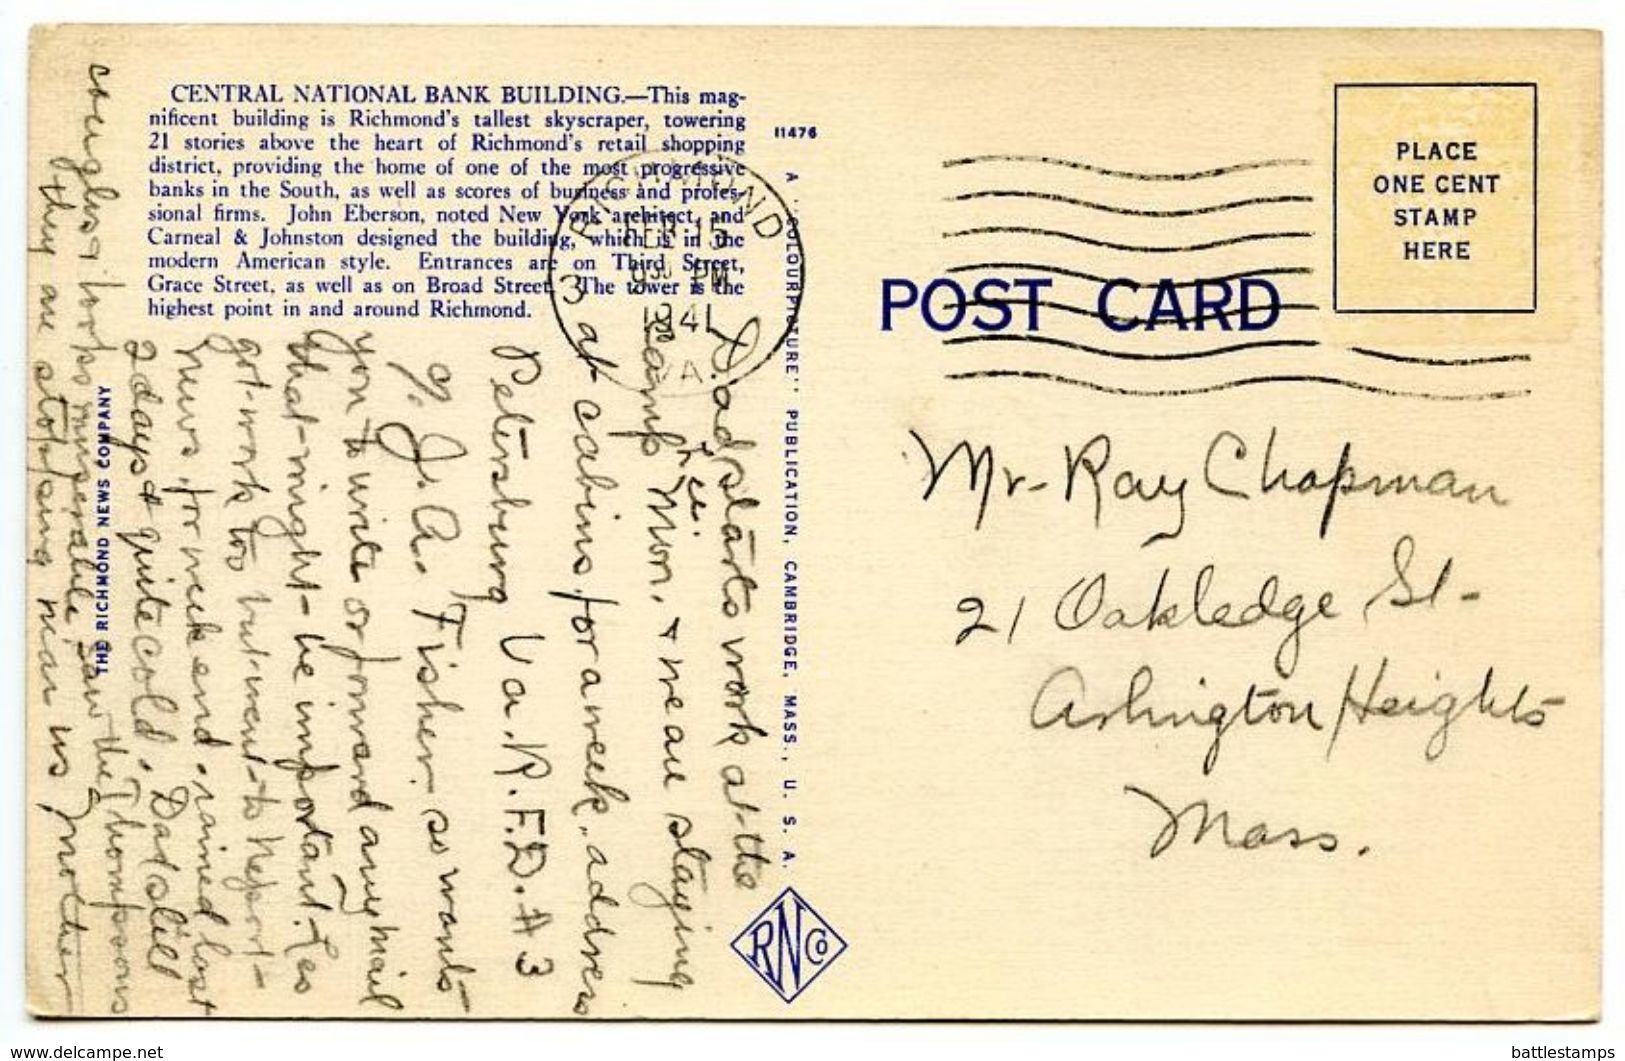 CENTRAL NATIONAL BANK BUILDING.—This mag-
nificent building is Richmond's tallest skyscraper, towering
21 stories above the heart of Richmond's retail shopping
district, providing the home of one of the most progressive
banks in the South, as well as scores of business and profes-
sional firms. John Eberson, noted New York architect, and
Carneal & Johnston designed the building, which is in the
modern American style. Entrances are on Third Street,
Grace Street, as well as on Broad Street. The tower is the
highest point in and around Richmond.
11476
A "COLOURPICTURE" PUBLICATION, CAMBRIDGE, MASS., U. S. A.
THE RICHMOND NEWS COMPANY
RNCo
RICHMOND
FEB 15
930 PM
1941
3
VA.
POST CARD
PLACE
ONE CENT
STAMP
HERE
Mr. Ray Chapman
21 Oakledge St.
Arlington Heights
Mass.
Dad starts work at the
Camp Lee Mon. & we are staying
at cabins for a week. address
Petersburg Va. R.F.D. #3
% J. A. Fisher. so wants
you to write or forward any mail
that might be important. Les
got work too but went to Report
News for week end. rained last
2 days & quite cold. Dad still
coughs & looks miserable, saw the Thompsons
they are stopping near us, Mother
Delcampe.net
battlestamps